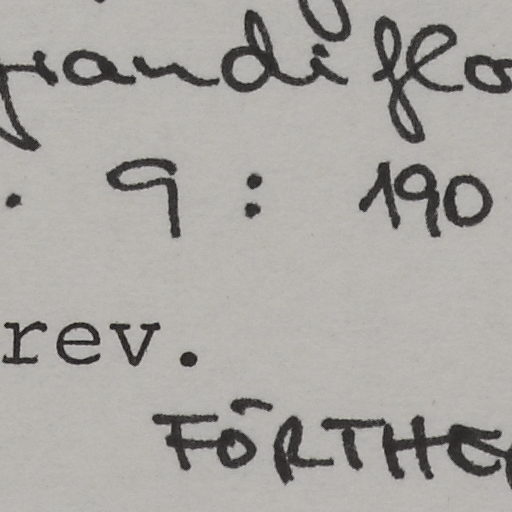 grandiflo
. 9 : 190
rev.
FÖRTHE